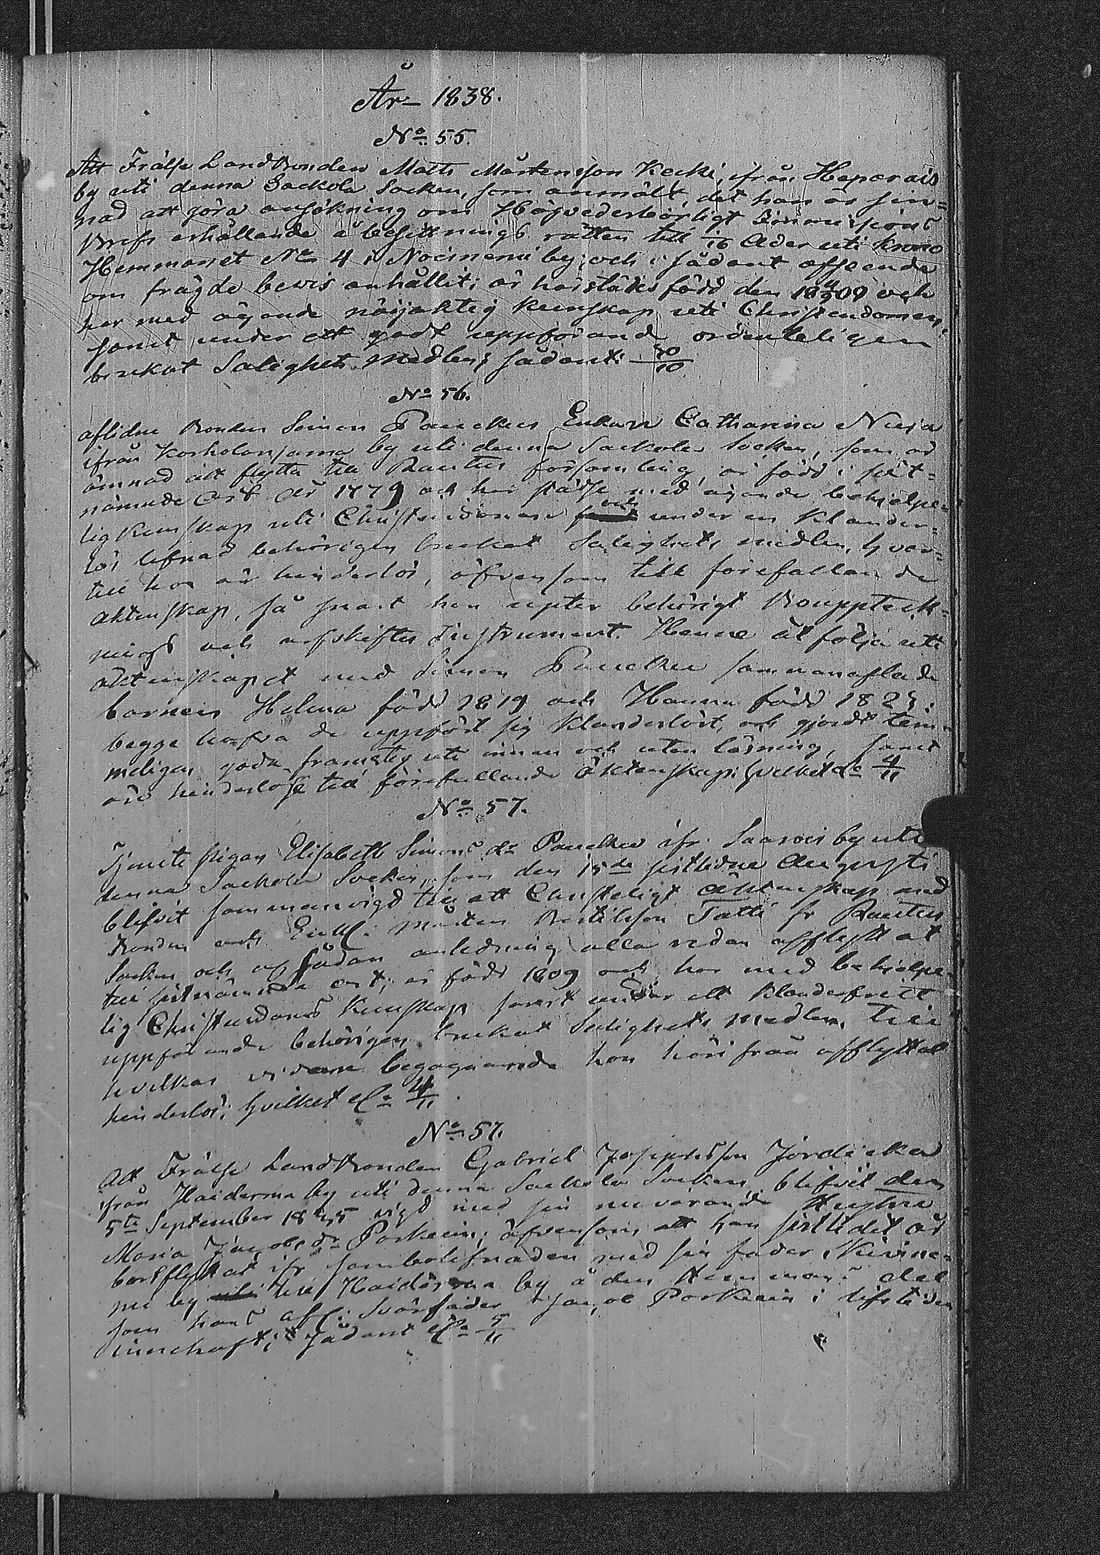 År 1838.
No 55.
Att Frälse Landbonden Matts Mårtensson Kecki, ifrån Haparais
by uti denna Sackola Socken, som anmält, det han är sin-
nad att göra ansökning om Högvederbörligt Immissions
Brefs erhållande å besittnings rätten till 1/16 Ader uti Krono
Hemmanet No 4 i Noisnemi by, och i sådant afseende
om frägde bevis anhållit; är härstädes född den 1809 och
har med ägande nöijaktig kunskap uti Christendomen,
samt under ett godt uppförande ordenteligen
brukat Salighets Medlen; sådant: 30/10
No 56.
aflidne Bonden Simon Pauckus Enkan Catharina Nusja
ifrån Korholanjama by uti denna Sackola Socken, som är
ämnad att flytta till Rautus församling är född i sist-
nämnde ort år 1779 och har städse med ägande behjelpe-
lig kunskap uti Christendomen och under en klander-
lös lefnad behörigen brukat Salighets medlen, hvar-
till hon är hinderlös, äfvensom till förefallande
äktenskap, så snart hon upter behörigt Boupptek-
nings och arfskiftes Instrument. Henne åtfölja utt
äktenskapet med Simon Paucku sammanaflade
barnen Helena född 1819 och Hanna född 1823;
begge hafva de uppfört sig klanderlöst, och gjordt tem-
meligen goda framsteg uti innan och utan läsning, samt
äro hinderlöse till förefallande äktenskap; hvilket &c 4/11
No 57.
Tjenste pigan Elisabeth Simons dr Paucku ifr Saarois by uti
denna Sackola Socken, som den 15de sistledne Augusti
blifvit sammanvigd till ett Christeligt äktenskap med
Bonden och Enkl: Mårten Bertilsson Tatti fr Rautus
Socken och af sådan anledning alla redan afflyttat
till sistnämnda ort, är född 1809 och har med behjelpe-
lig Christendoms kunskap samt under ett klanderfritt
uppförande behörigen brukat Salighets medlen, till
hvilkas vidare begagnande hon härifrån afflyttat
hinderlös; hvilket &c 4/11.
No 57.
Att Frälse Landbonden Gabriel Josephsson Jördicka
från Haiderma by uti denna Sackola Socken blifvit den
5te September 1835 vigd med sin nuvarande Hustru
Maria Jacobs dr Porkein; äfvensom att han sistledit år
bortflyttat ifr sambolefnaden med sin fader i Kivine-
mi by till Haiderma by å den Hemmans del
som hans afl: Svärfader Jacob Porkein i lifstiden
innehaft; sådant &c 5/11